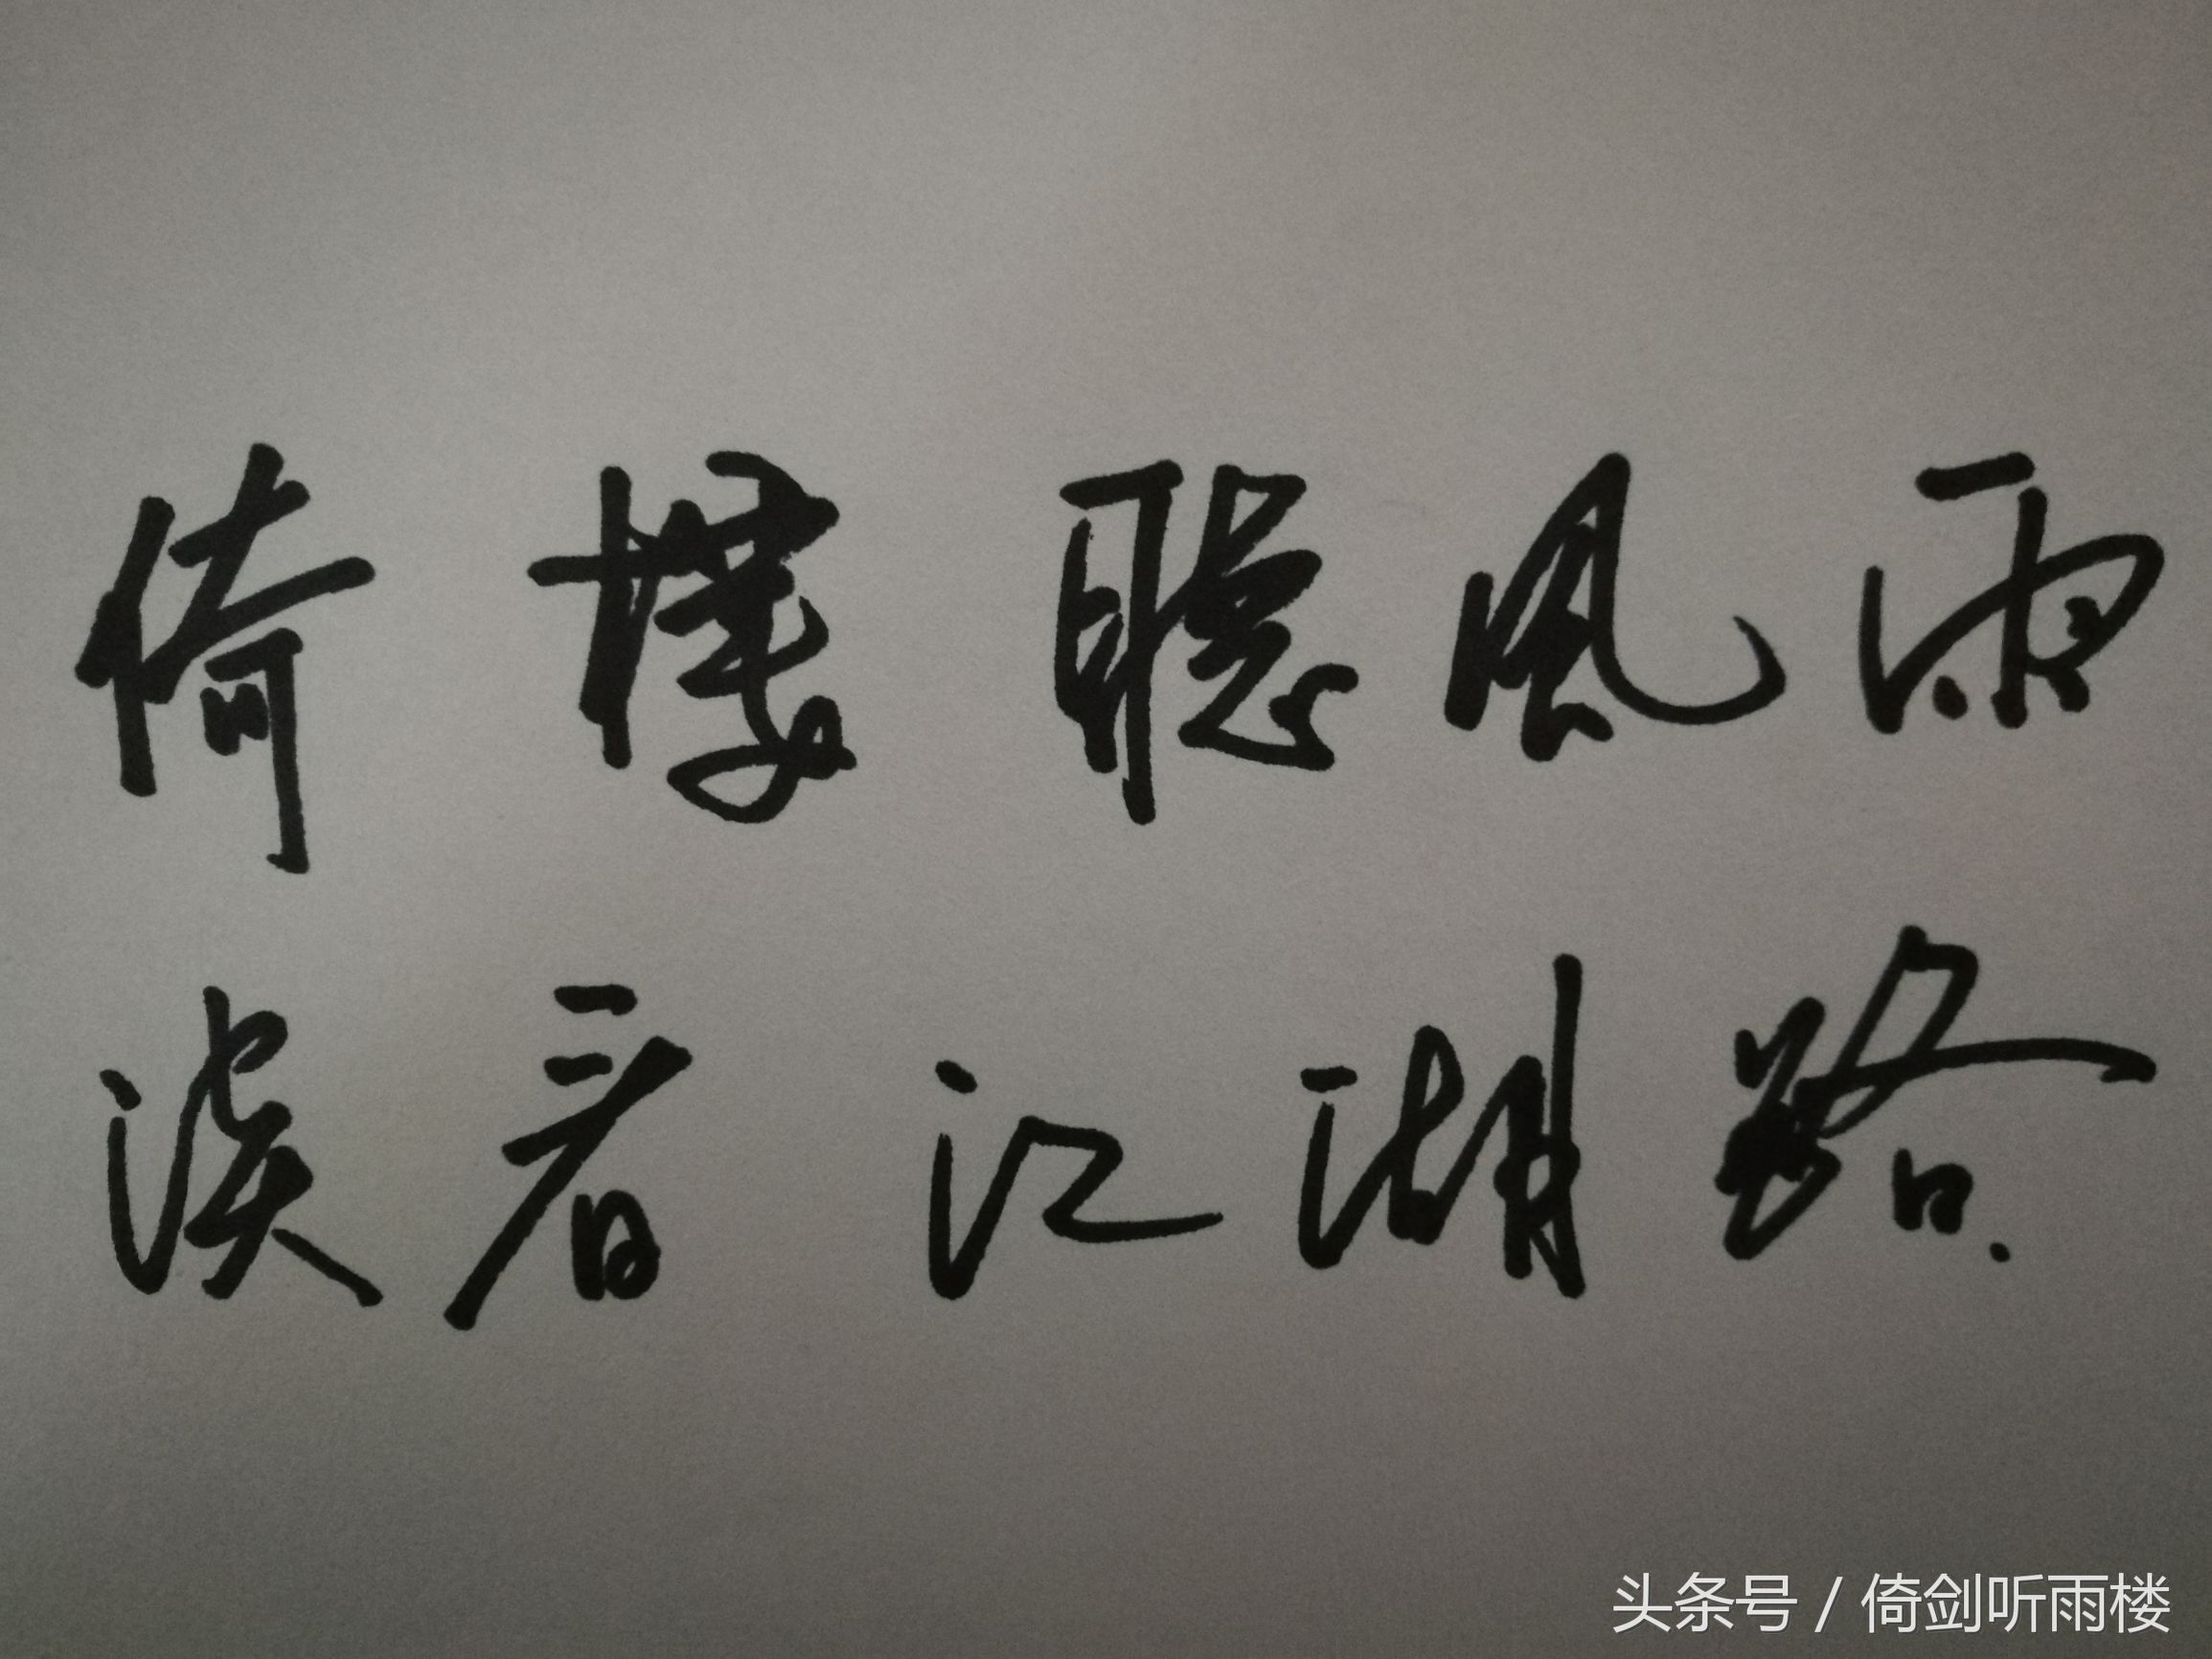 倚樓聽風雨
淡看江湖路.
头条号 / 倚剑听雨楼